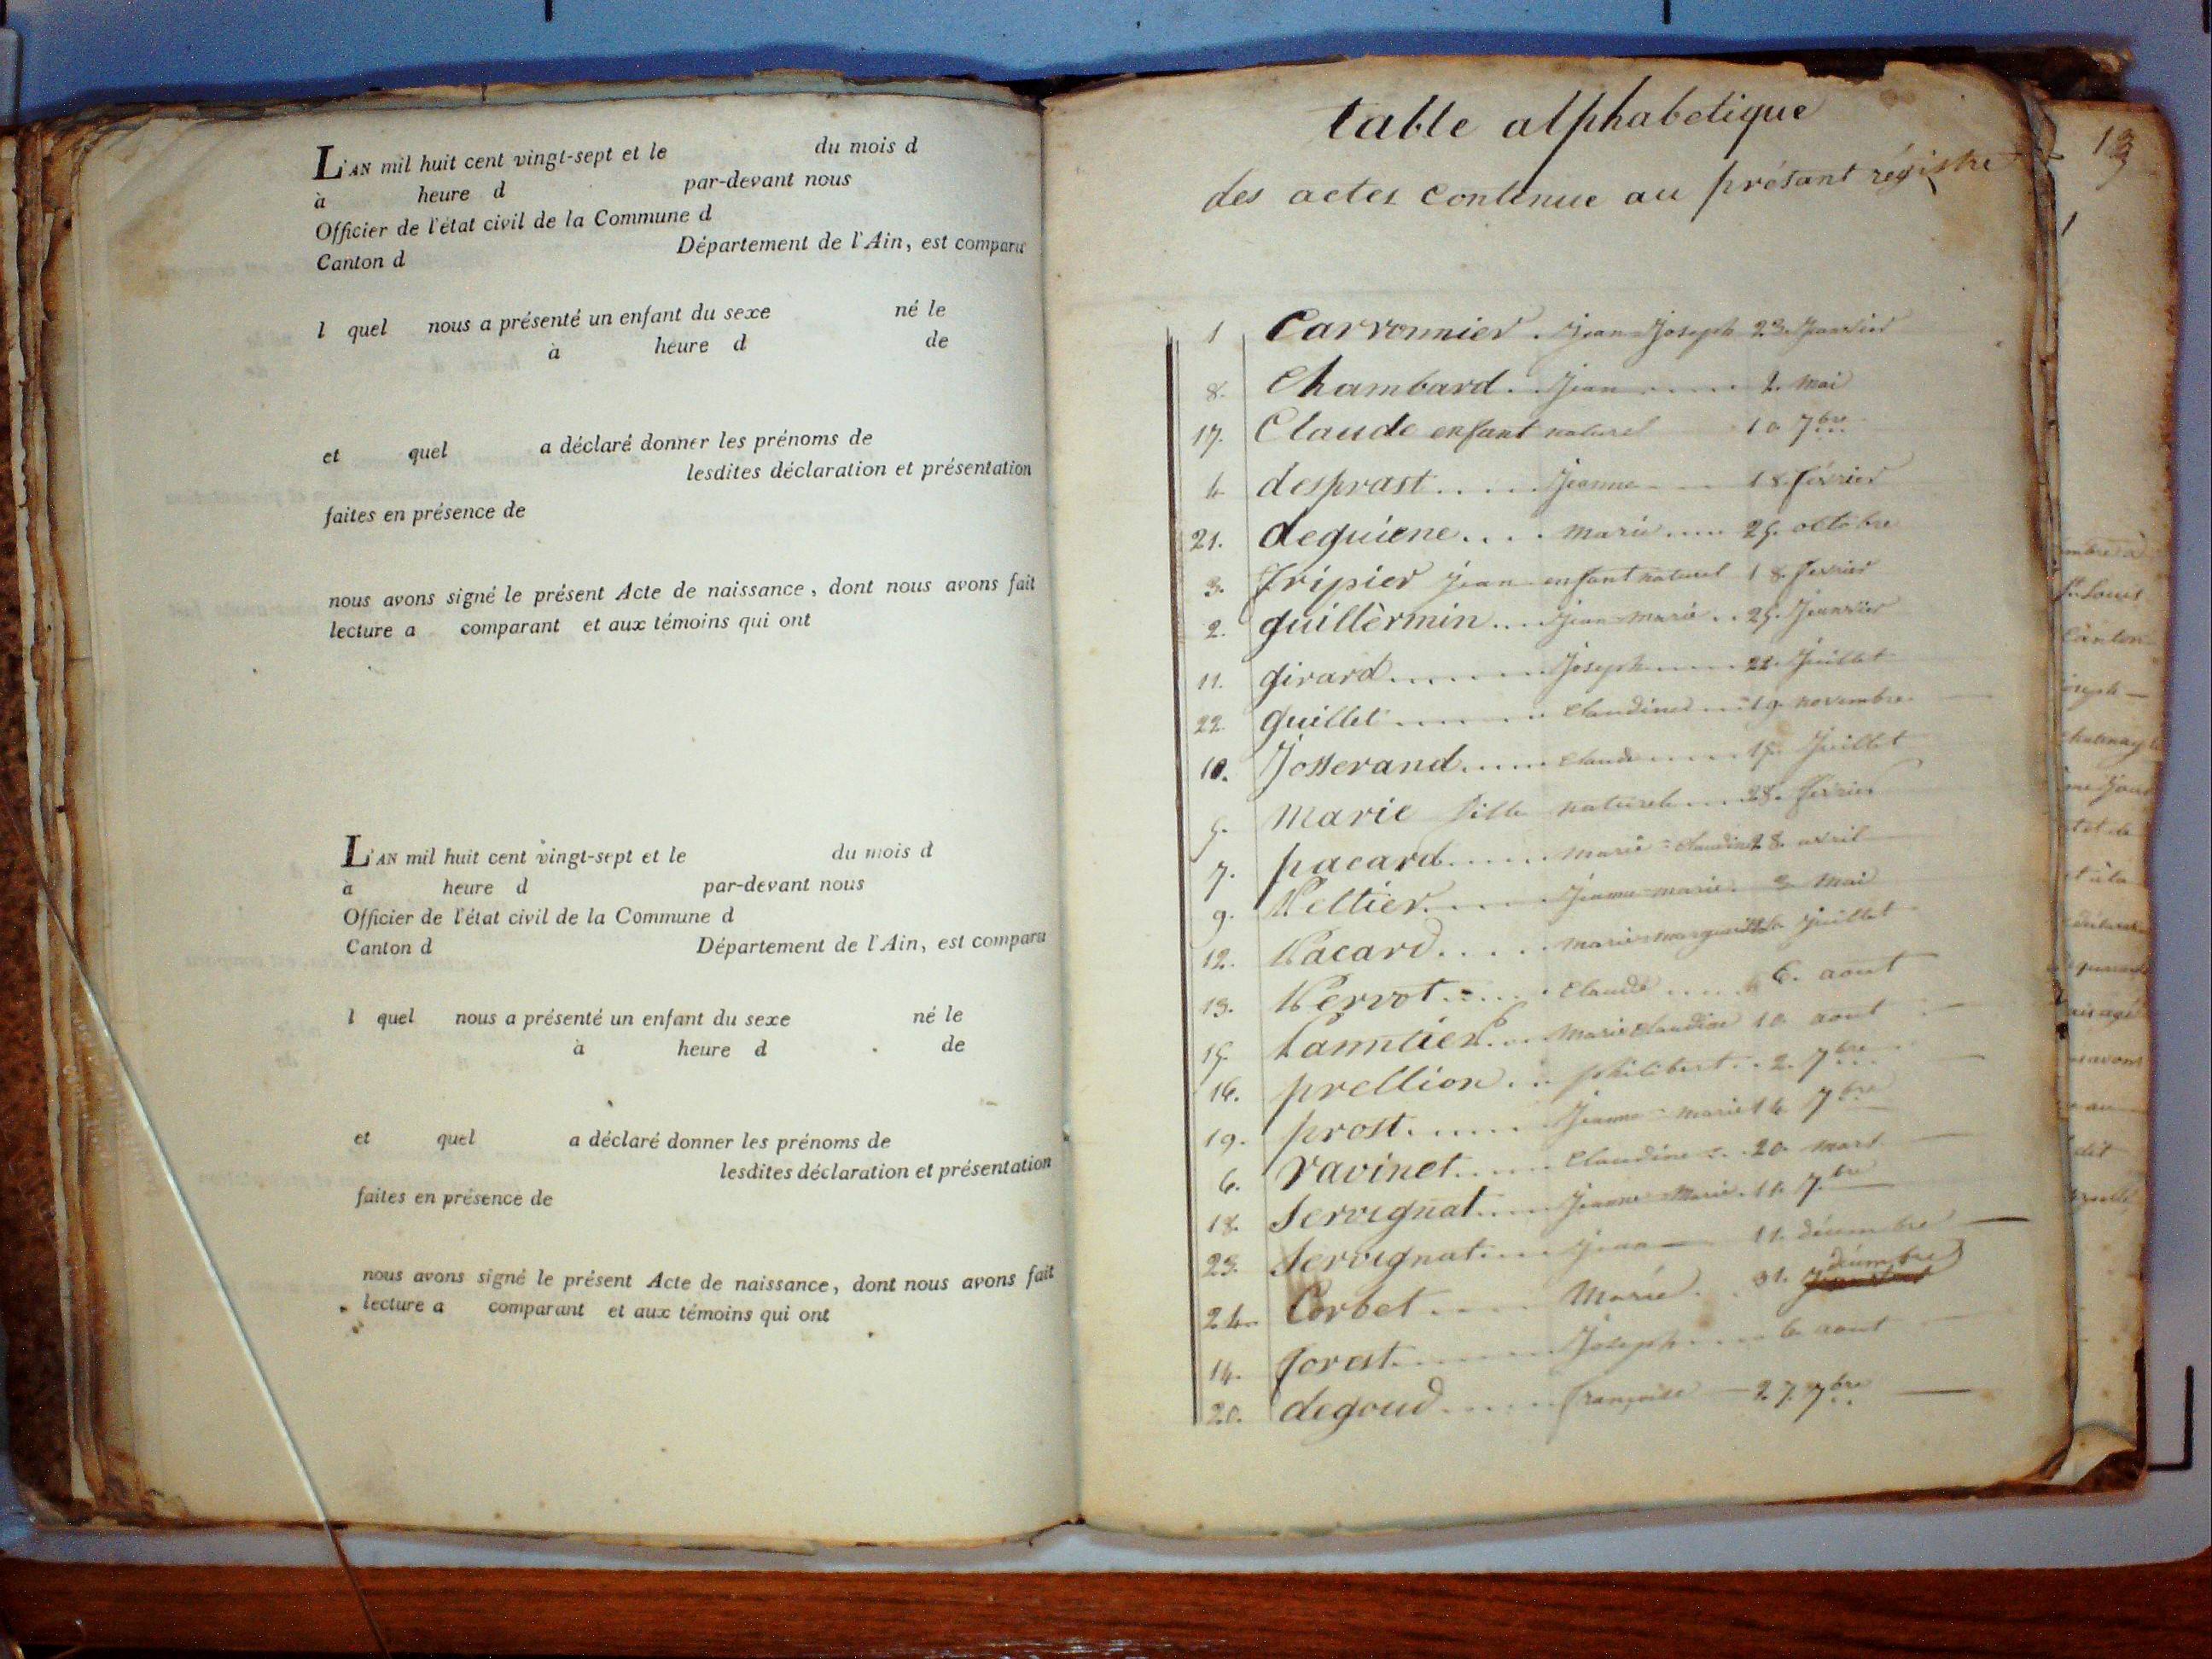 L'AN mil huit cent vingt-sept et le du mois d
à heure d par-devant nous
Officier de l'état civil de la Commune d
Canton d Département de l'Ain, est comparu
l quel nous a présenté un enfant du sexe né le
à heure d de
et quel a déclaré donner les prénoms de
lesdites déclaration et présentation
faites en présence de
nous avons signé le présent Acte de naissance, dont nous avons fait
lecture a comparant et aux témoins qui ont
L'AN mil huit cent vingt-sept et le du mois d
à heure d par-devant nous
Officier de l'état civil de la Commune d
Canton d Département de l'Ain, est comparu
l quel nous a présenté un enfant du sexe né le
à heure d de
et quel a déclaré donner les prénoms de
lesdites déclaration et présentation
faites en présence de
nous avons signé le présent Acte de naissance, dont nous avons fait
lecture a comparant et aux témoins qui ont
table alphabetique
des actes contenue au présant régistre
1 Carronnier . Jean-Joseph 23. Janvier
8. Chambard . . Jean . . . . 2. mai
17. Claude enfant naturel 10 7bre
4 desprast . . . . . Jeanne 18 février
21. dequiene . . . . marie . . . . 25. octobre
3. fripier Jean enfant naturel 18 fevrier
2. guillèrmin . . . Jean-marie . . 25. Janvier
11. girard . . . . . . . Joseph . . . . . 22. Juillet
22. guillet . . . . . . . Claudine . . . 19 novembre
10. Josserand . . . . . Claude . . . . . 15. Juillet
5. Marie fille naturele . . . 28. février
7. pacard . . . . . marie-Claudine 28. avril
9. Peltier . . . . . Jeanne-marie. 3 Mai
12. Pacard . . . . . marie marguerite Juillet
13. Pervot . . . . . Claude . . . . 6. aout
15. marie Claudine 10. aout
16. prellion . . . philibert . . 2. 7bre
19. prost . . . . . . Jeanne-marie 14 7bre
6. ravinet . . . . . Claudine . . 20. mars
18. Servignat . . . . Jeanne Marie. 11. 7bre
23. Servignat . . . . Jean 11. décembre
24. Corbet . . . . Marie . . 31. décembre
14. forest . . . . . . Joseph . . . . 6 aout
20. degoud . . . . . . françoise 27. 7bre